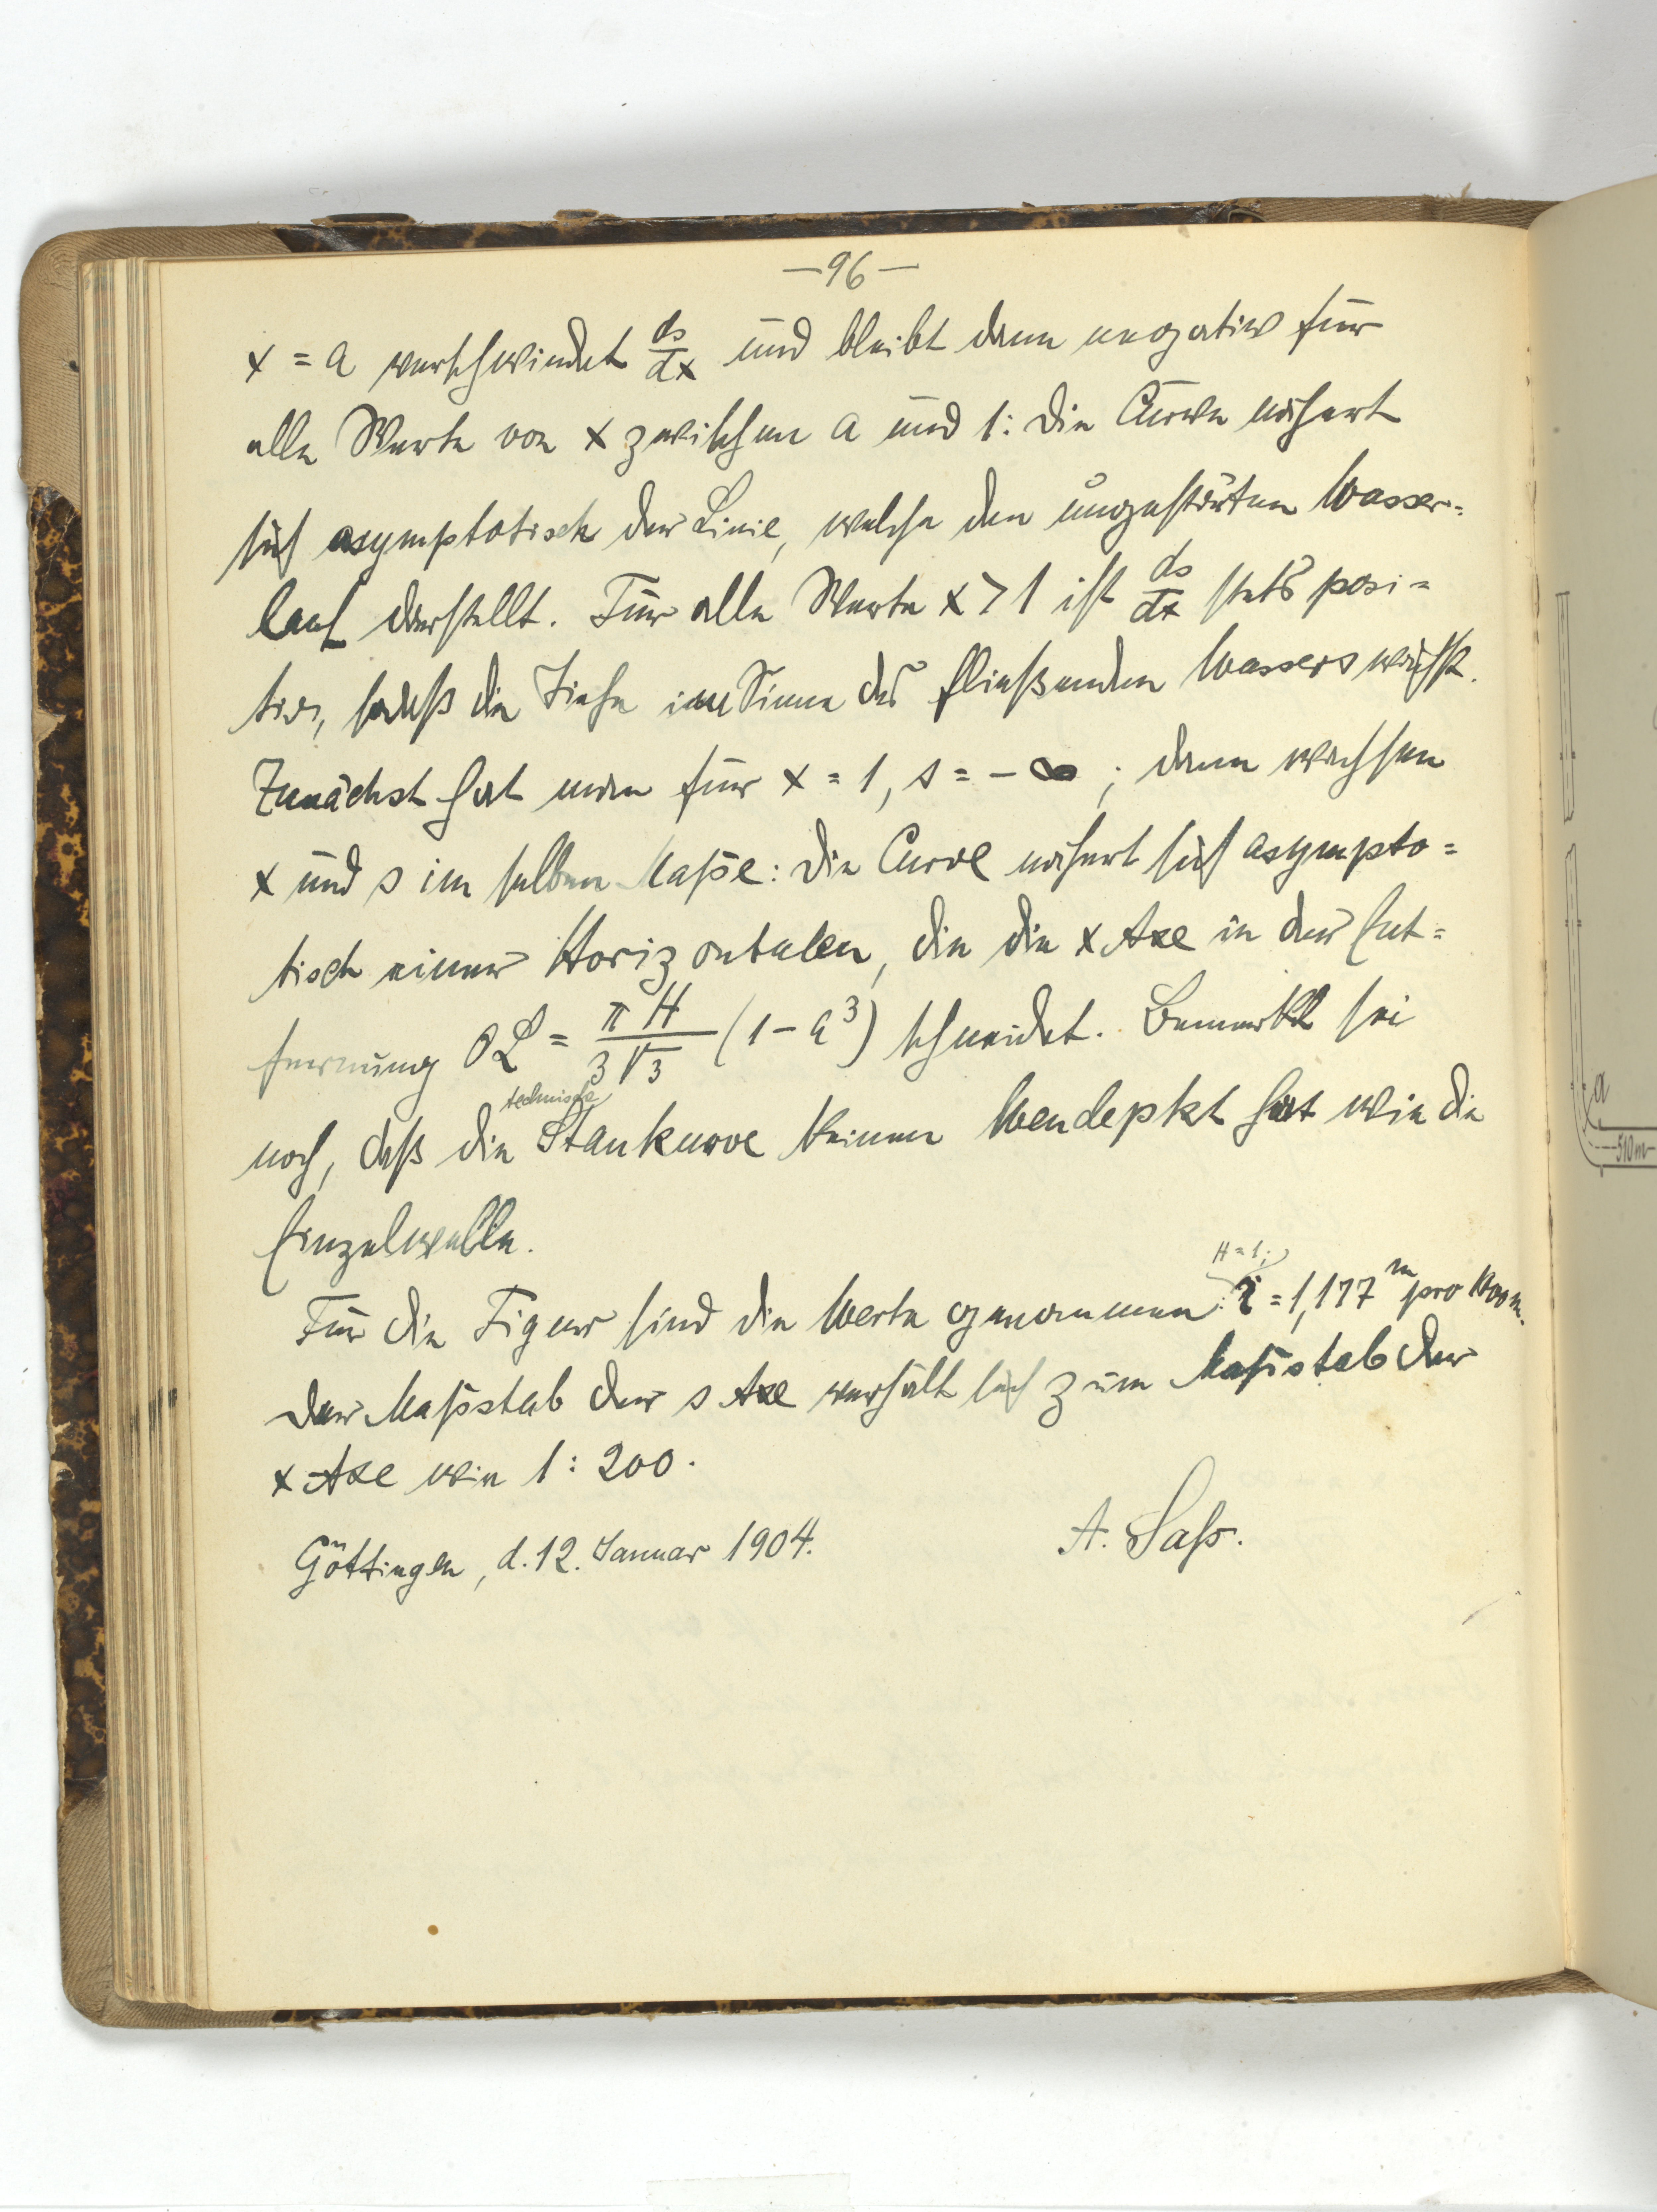 —96—
x = a verschwindet ds/dx und bleibt dann negativ für
alle Werte von x zwischen a und 1: die Curve nähert
sich asymptotisch der Linie, welche den ungestörten Wasser=
lauf darstellt. Für alle Werte x > 1 ist ds/dx stets posi=
tiv, sodaß die Tiefe im Sinne des fließenden Wassers wächst.
Zunächst hat man für x = 1, s = - ∞; dann wachsen
x und s im selben Maße: die Curve nähert sich asympto=
tisch einer Horizontalen, die die x Axe in der Ent=
fernung OL = πH/3√3 (1 - a³) schneidet. Bemerkt sei
noch, daß die technische Staukurve keinen Wendepkt hat wie die
Einzelwelle.
Für die Figur sind die Werte genommen: H = 1; i = 1,177 m pro 1000 m.
Der Maßstab der s Axe verhält sich zum Maßstab der
x Axe wie 1 : 200.
Göttingen, d. 12. Januar 1904.
A. Saß.
a
510m